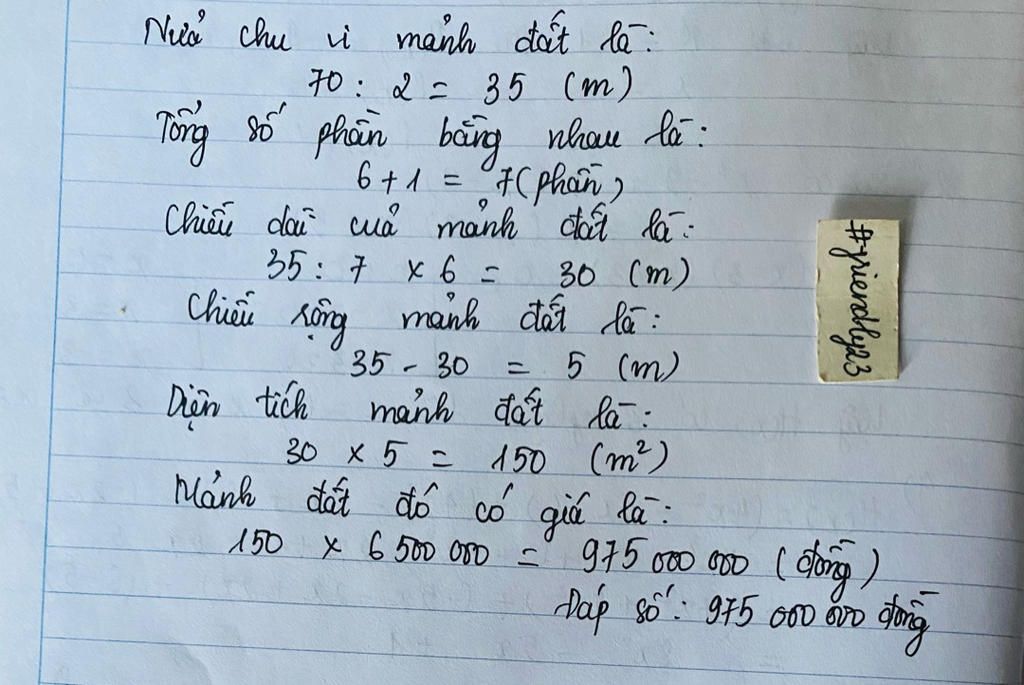 Nửa chu vi mảnh đất là:
70 : 2 = 35 (m)
Tổng số phần bằng nhau là:
6 + 1 = 7 (phần)
Chiều dài của mảnh đất là:
35 : 7 x 6 = 30 (m)
Chiều rộng mảnh đất là:
35 - 30 = 5 (m)
Diện tích mảnh đất là:
30 x 5 = 150 (m²)
Mảnh đất đó có giá là:
150 x 6 500 000 = 975 000 000 (đồng)
Đáp số: 975 000 000 đồng
#friendly23